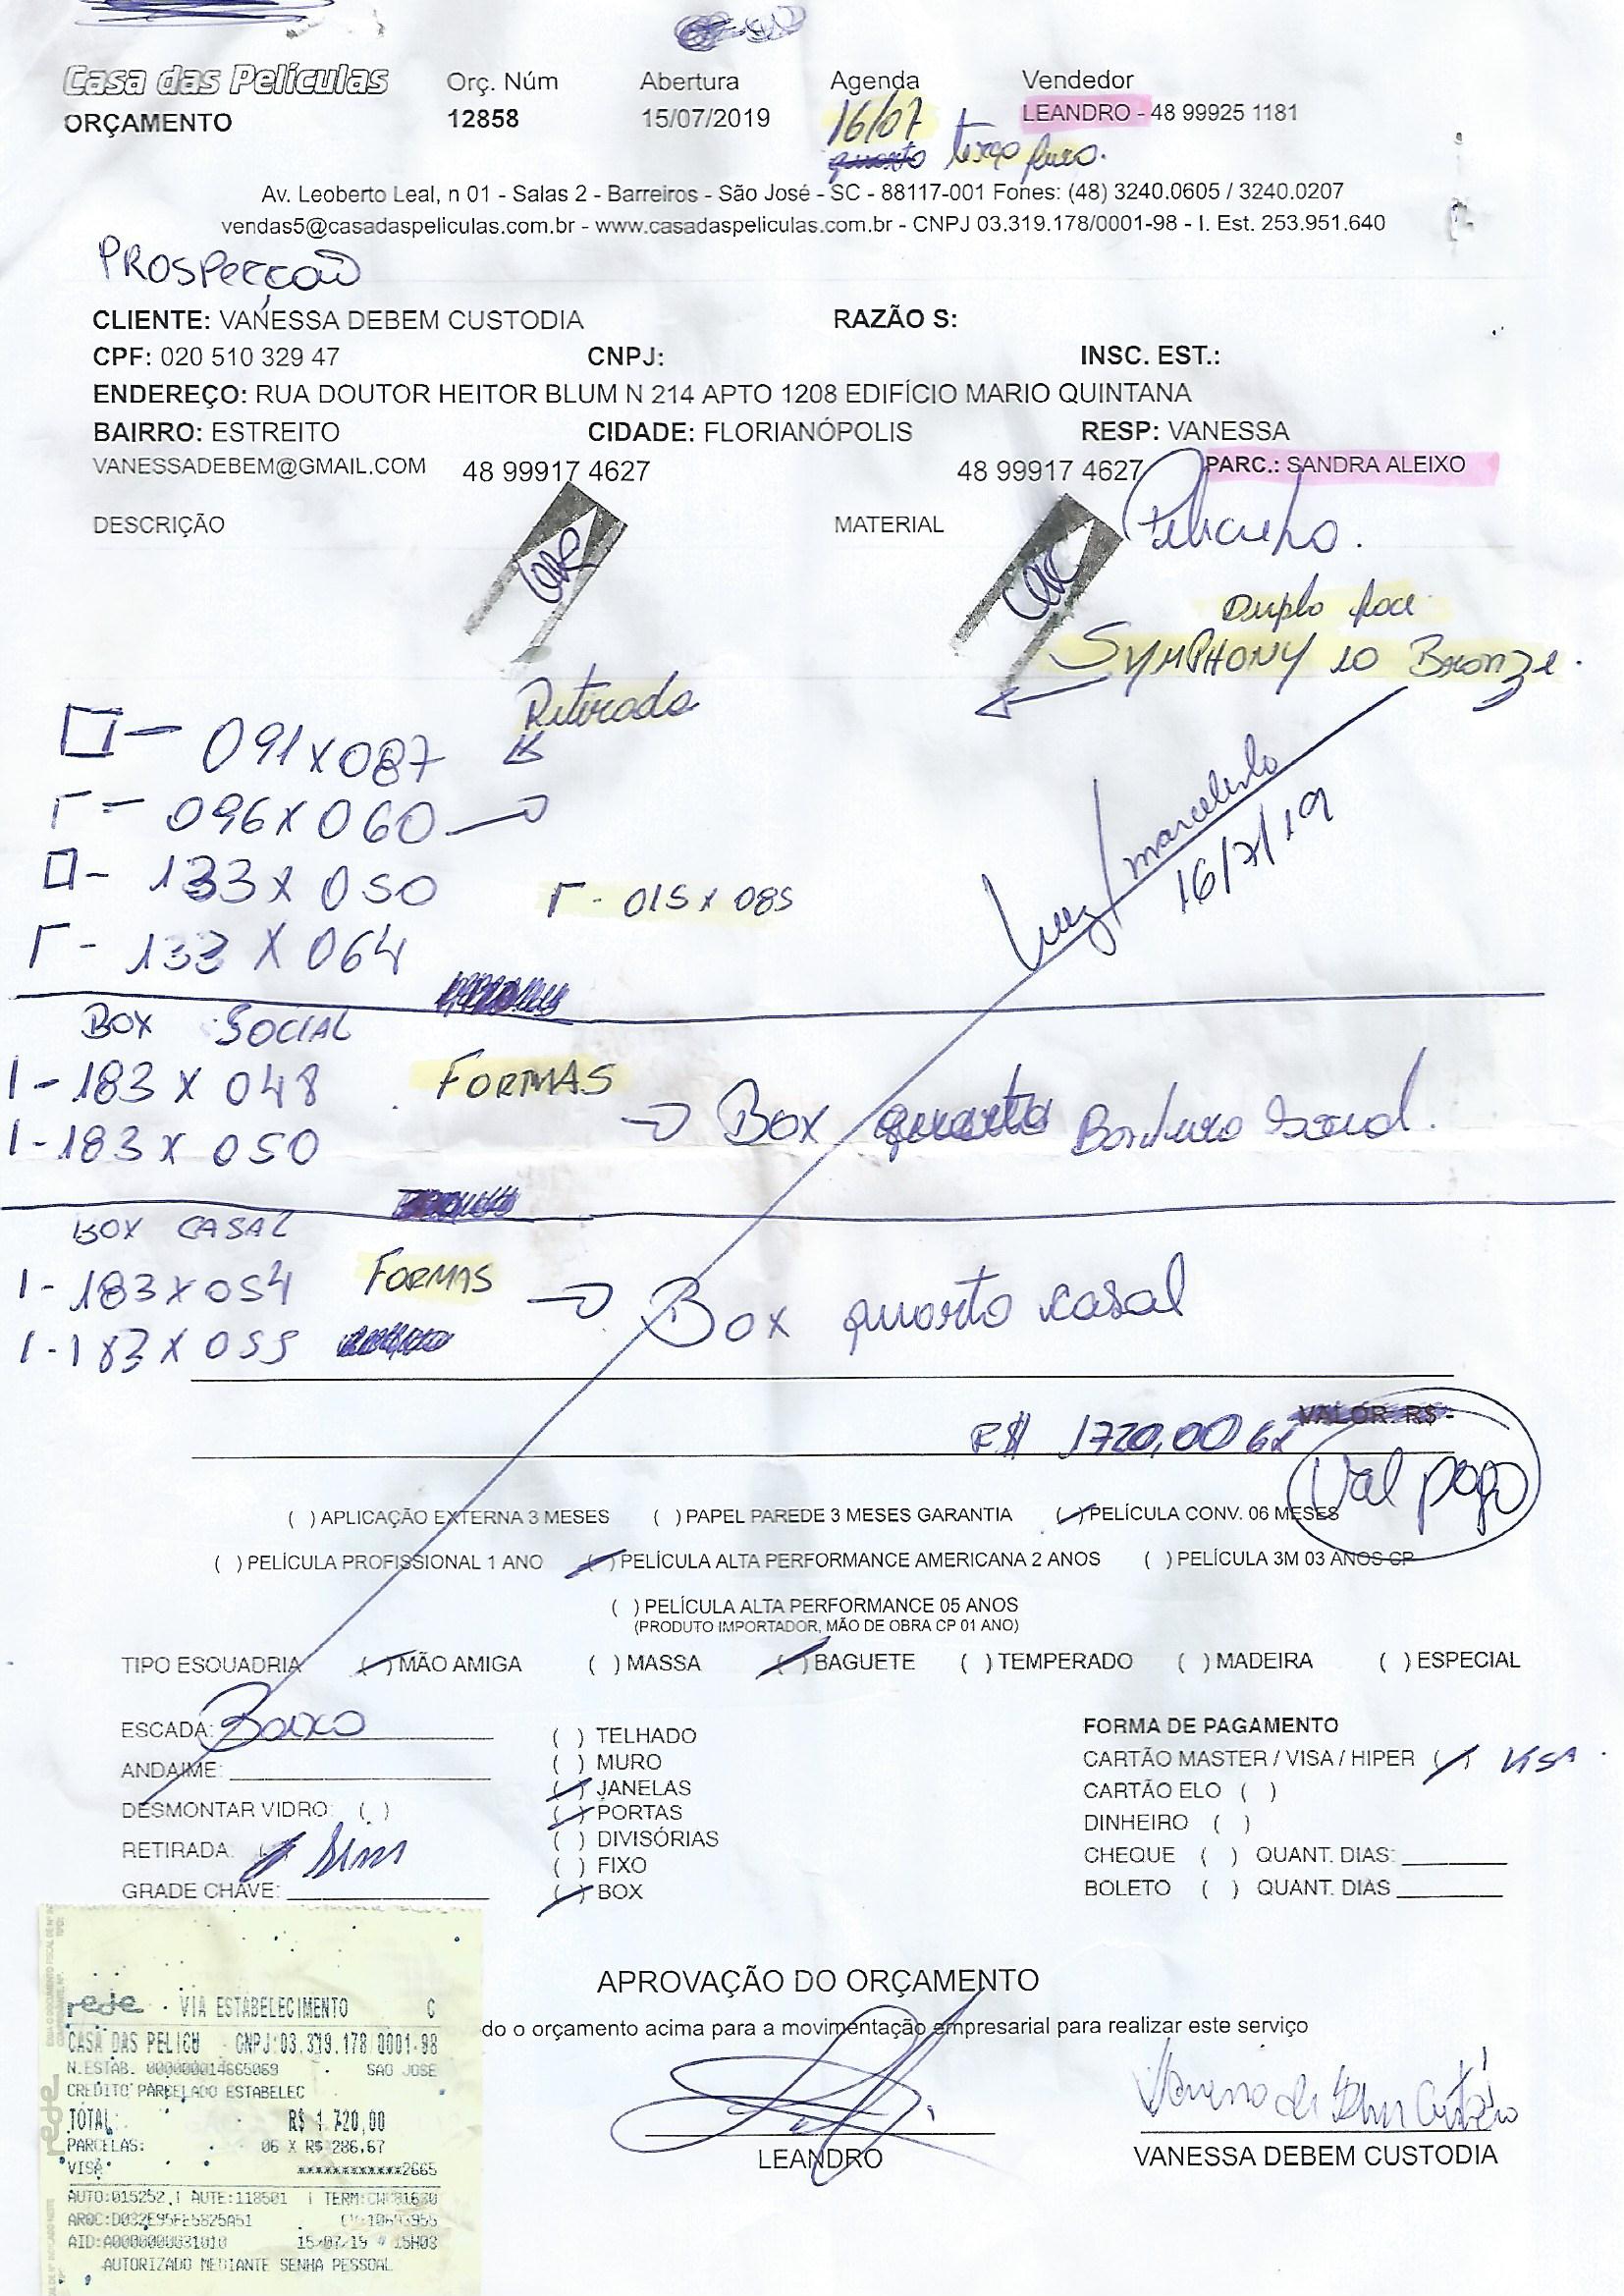 Casa das Películas
ORÇAMENTO
Orç. Núm
12858
Abertura
15/07/2019
Agenda
16/07
quarto terça feira.
Vendedor
LEANDRO - 48 99925 1181
Av. Leoberto Leal, n 01 - Salas 2 - Barreiros - São José - SC - 88117-001 Fones: (48) 3240.0605 / 3240.0207
vendas5@casadaspeliculas.com.br - www.casadaspeliculas.com.br - CNPJ 03.319.178/0001-98 - I. Est. 253.951.640
PROSPECÇÃO
CLIENTE: VANESSA DEBEM CUSTODIA RAZÃO S:
CPF: 020 510 329 47 CNPJ: INSC. EST.:
ENDEREÇO: RUA DOUTOR HEITOR BLUM N 214 APTO 1208 EDIFÍCIO MARIO QUINTANA
BAIRRO: ESTREITO CIDADE: FLORIANÓPOLIS RESP: VANESSA
VANESSADEBEM@GMAIL.COM 48 99917 4627 48 99917 4627 PARC.: SANDRA ALEIXO
DESCRIÇÃO MATERIAL
Duplo face
SYMPHONY 10 BRONZE.
Retirada
091 x 087
096 x 060
133 x 050
015 x 085
133 x 064
marcelinho
16/7/19
BOX SOCIAL
1 - 183 x 048 FORMAS
Box quarto Banheiro Social.
1 - 183 x 050
BOX CASAL
1 - 183 x 054 FORMAS
Box quarto casal
1 - 183 x 055
VALOR R$ -
R$ 1720,00 6x
Val pago
( ) APLICAÇÃO EXTERNA 3 MESES ( ) PAPEL PAREDE 3 MESES GARANTIA ( ) PELÍCULA CONV. 06 MESES
( ) PELÍCULA PROFISSIONAL 1 ANO ( ) PELÍCULA ALTA PERFORMANCE AMERICANA 2 ANOS ( ) PELÍCULA 3M 03 ANOS CP
( ) PELÍCULA ALTA PERFORMANCE 05 ANOS
(PRODUTO IMPORTADOR, MÃO DE OBRA CP 01 ANO)
TIPO ESQUADRIA ( ) MÃO AMIGA ( ) MASSA ( ) BAGUETE ( ) TEMPERADO ( ) MADEIRA ( ) ESPECIAL
ESCADA: Baixo
ANDAIME:
DESMONTAR VIDRO: ( )
RETIRADA: ( ) Sim
GRADE CHAVE:
( ) TELHADO
( ) MURO
( ) JANELAS
( ) PORTAS
( ) DIVISÓRIAS
( ) FIXO
( ) BOX
FORMA DE PAGAMENTO
CARTÃO MASTER / VISA / HIPER ( ) VISA
CARTÃO ELO ( )
DINHEIRO ( )
CHEQUE ( ) QUANT. DIAS:
BOLETO ( ) QUANT. DIAS
APROVAÇÃO DO ORÇAMENTO
do o orçamento acima para a movimentação empresarial para realizar este serviço
LEANDRO
VANESSA DEBEM CUSTODIA
rede VIA ESTABELECIMENTO C
CASA DAS PELICU CNPJ:03.319.178/0001-98
N.ESTAB. 000000014665069 SAO JOSE
CREDITO PARCELADO ESTABELEC
TOTAL: R$ 1.720,00
PARCELAS: 06 X R$ 286,67
VISA ************2665
AUTO:015252 | AUTE:118501 | TERM:
15/07/19 15H03
AUTORIZADO MEDIANTE SENHA PESSOAL